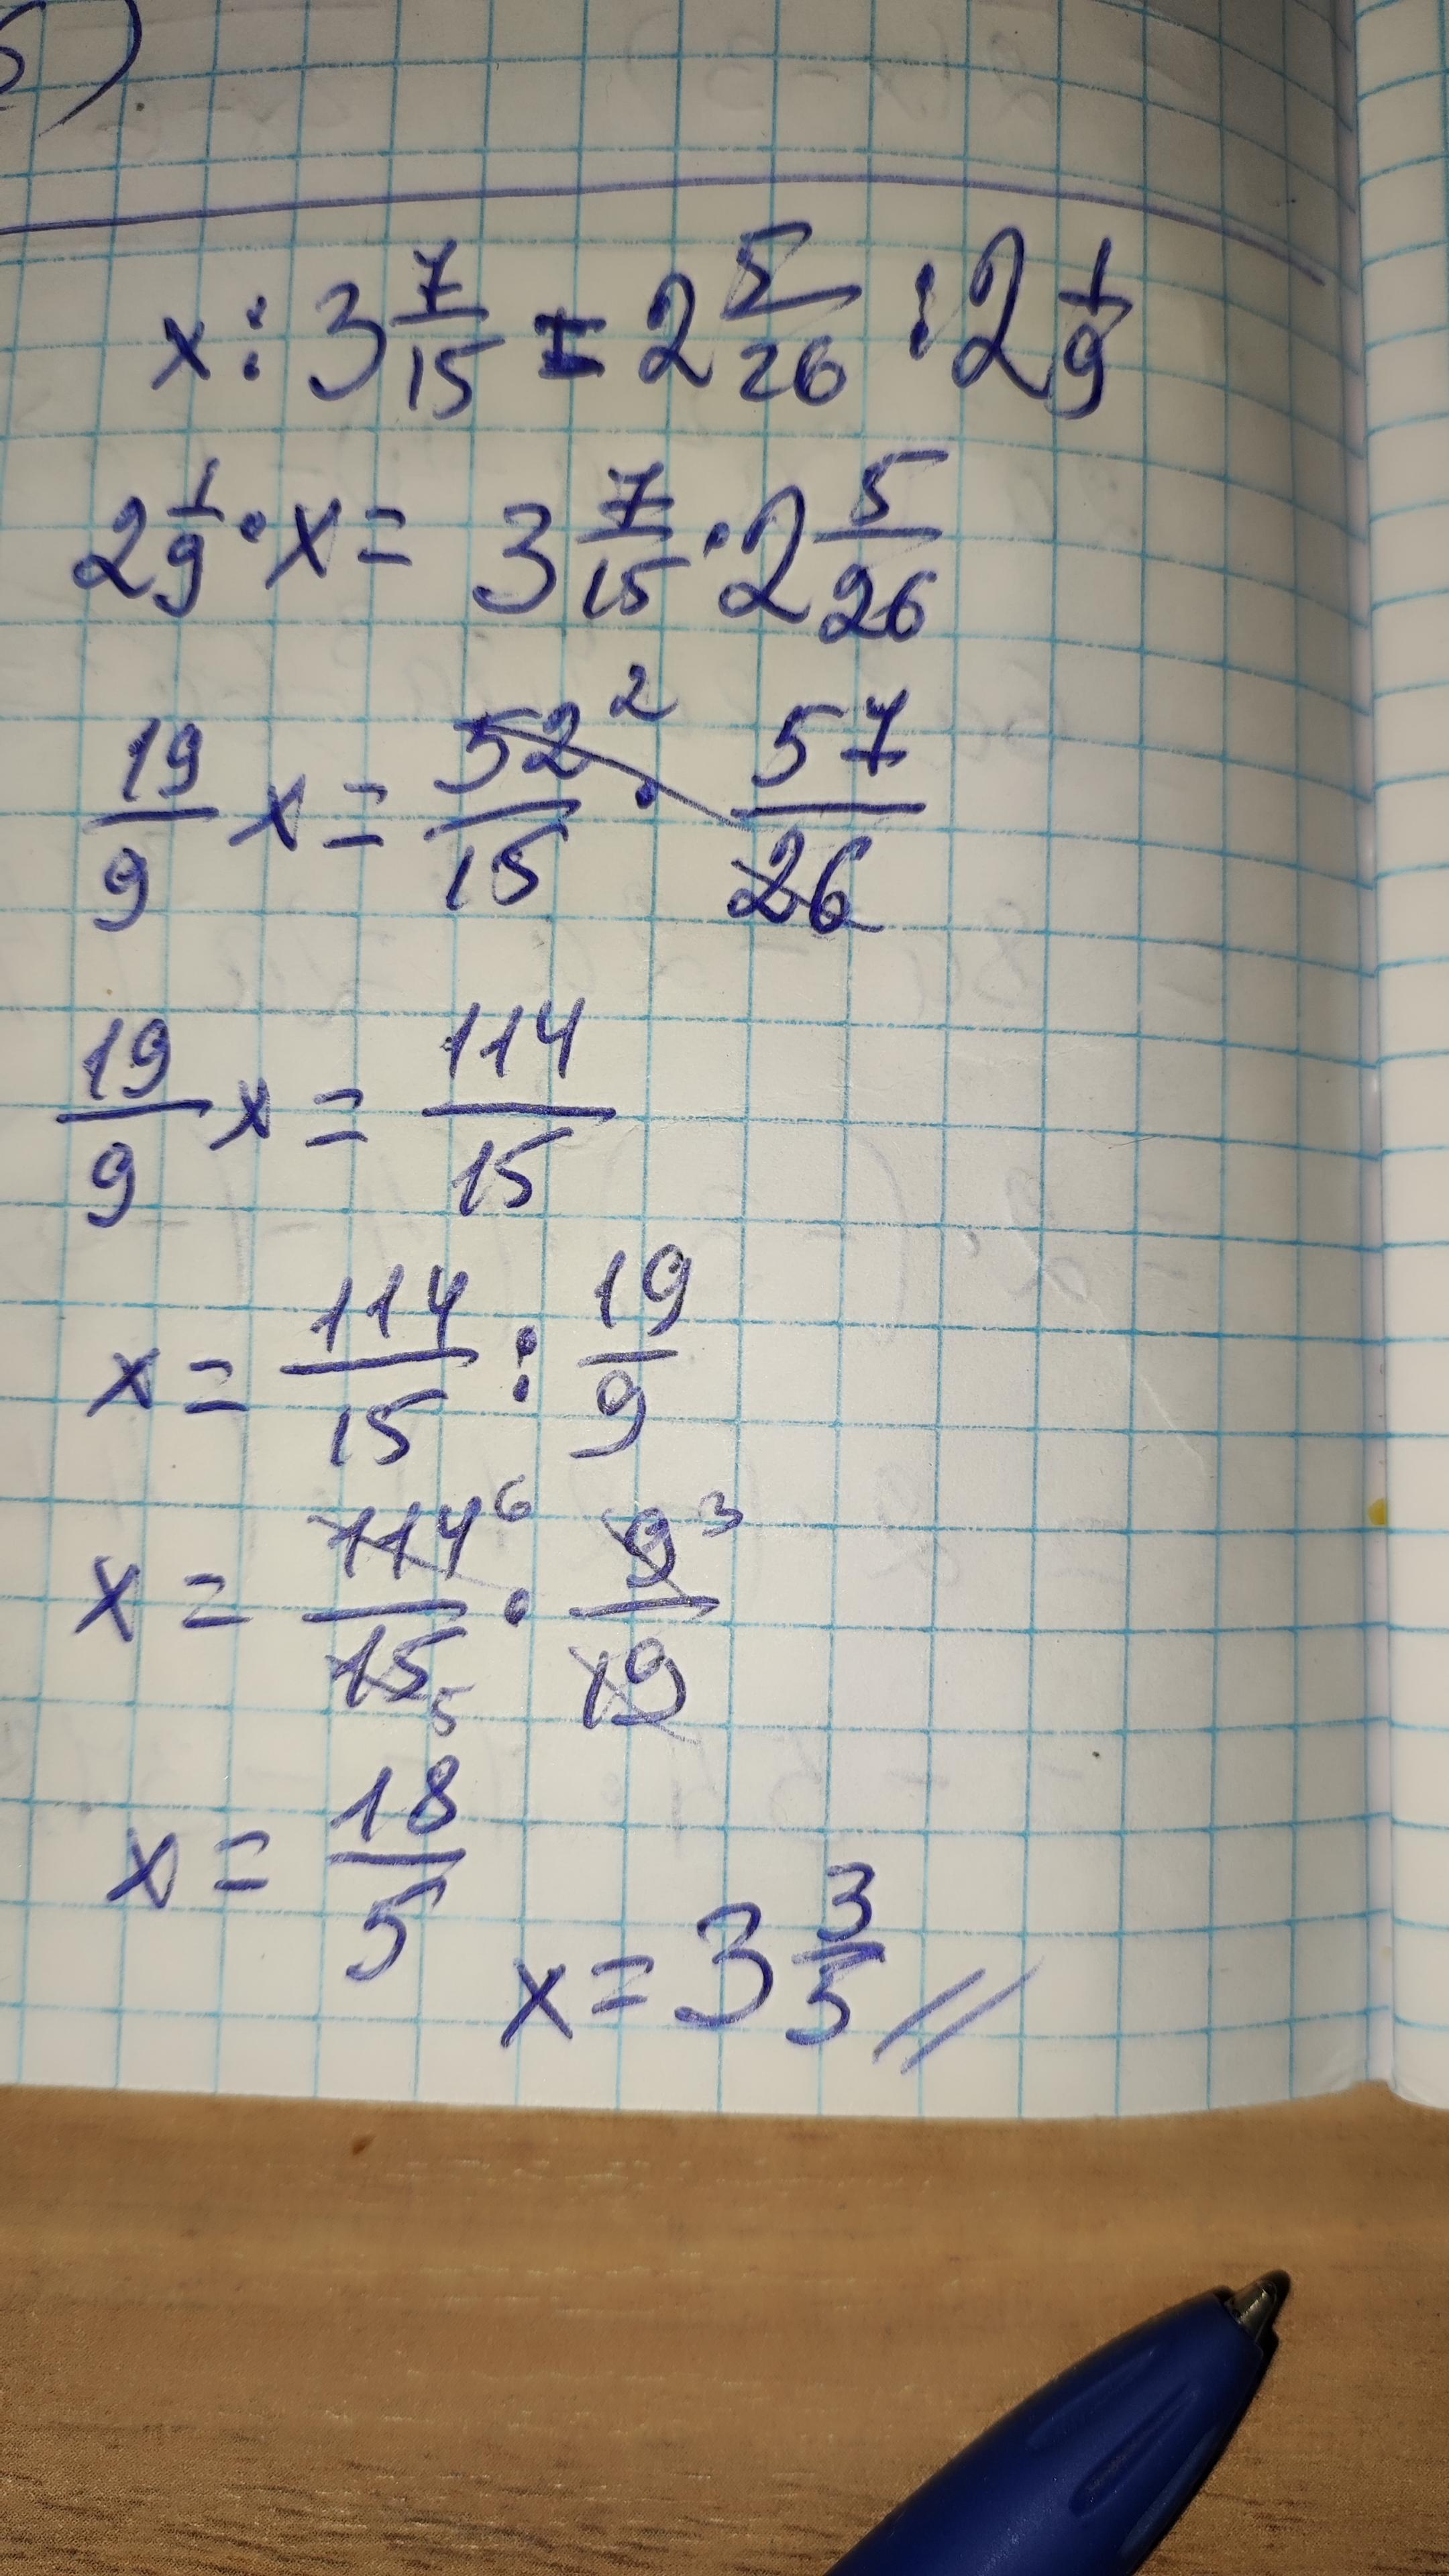 5)
x : 3 7/15 = 2 5/26 : 2 1/9
2 1/9 · x = 3 7/15 · 2 5/26
19/9 x = 52/15 2 · 57/26
19/9 x = 114/15
x = 114/15 : 19/9
x = 114 6/15 5 · 9 3/19
x = 18/5
x = 3 3/5 //